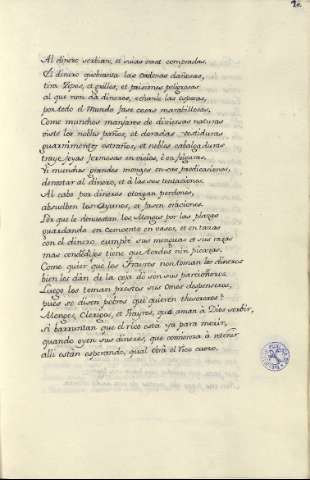 Al dinero serbian, et suias eran compradas.
El dinero quebranta las cadenas dañosas,
tira zepos, et grillos, et prisiones peligrosas
al que non da dineros, echanle las esposas,
por todo el mundo fase cosas marabillosas.
Come munchos manjares de diviersas naturas
viste los nobles paños, et doradas vestiduras
guarnimentos estraños, et nobles cabalgaduras
traye joyas fermosas en vicios, è en folguras.
Vi munchos grandes monges en sus predicaciones,
denostar al dinero, et à las sus tentaciones
Al cabo por dineros otorgan perdones,
absuelben los ayunos, et fasen oraciones.
Por que le denuestan los Monges por las plazas
guardando en convento en vasos, et en tazas
con el dinero, cumple sus menguas et sus razas
mas condedijos tiene que tordos nin picazas.
Como quier que los Frayres non toman los dineros
bien les dan de la ceja dò son sus parcioneros
Luego los toman prestos sus omes despenseros,
pues se disen pobres què quieren thesoreros?
Monges, Clerigos, et Frayres, què aman à Dios serbir,
si barruntan que el rico està ya para morir,
quando oyen sus dineros, que comienza à reteñir,
alli estan esperando, qual abrà el rico cuero.